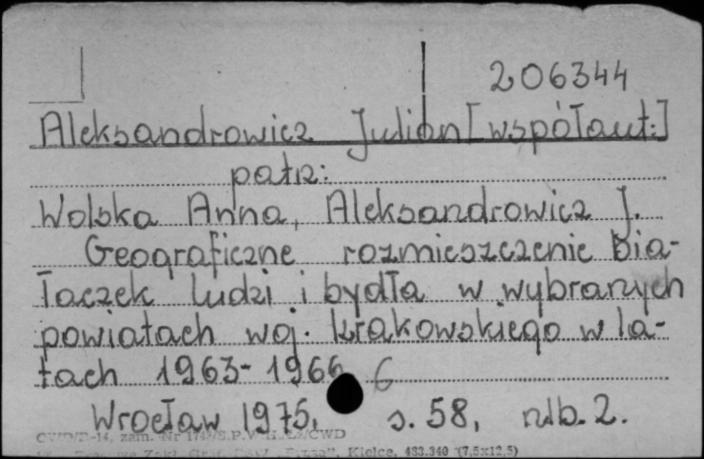 206344
Aleksandrowicz Julian [współaut.]
patrz:
Wolska Anna, Aleksandrowicz J.
Geograficzne rozmieszczenie bia-
łaczek ludzi i bydła w wybranych
powiatach woj. krakowskiego w la-
tach 1963-1966
Wrocław 1975, s. 58, nlb. 2.
Kielce, 483.340 (7,5x12,5)